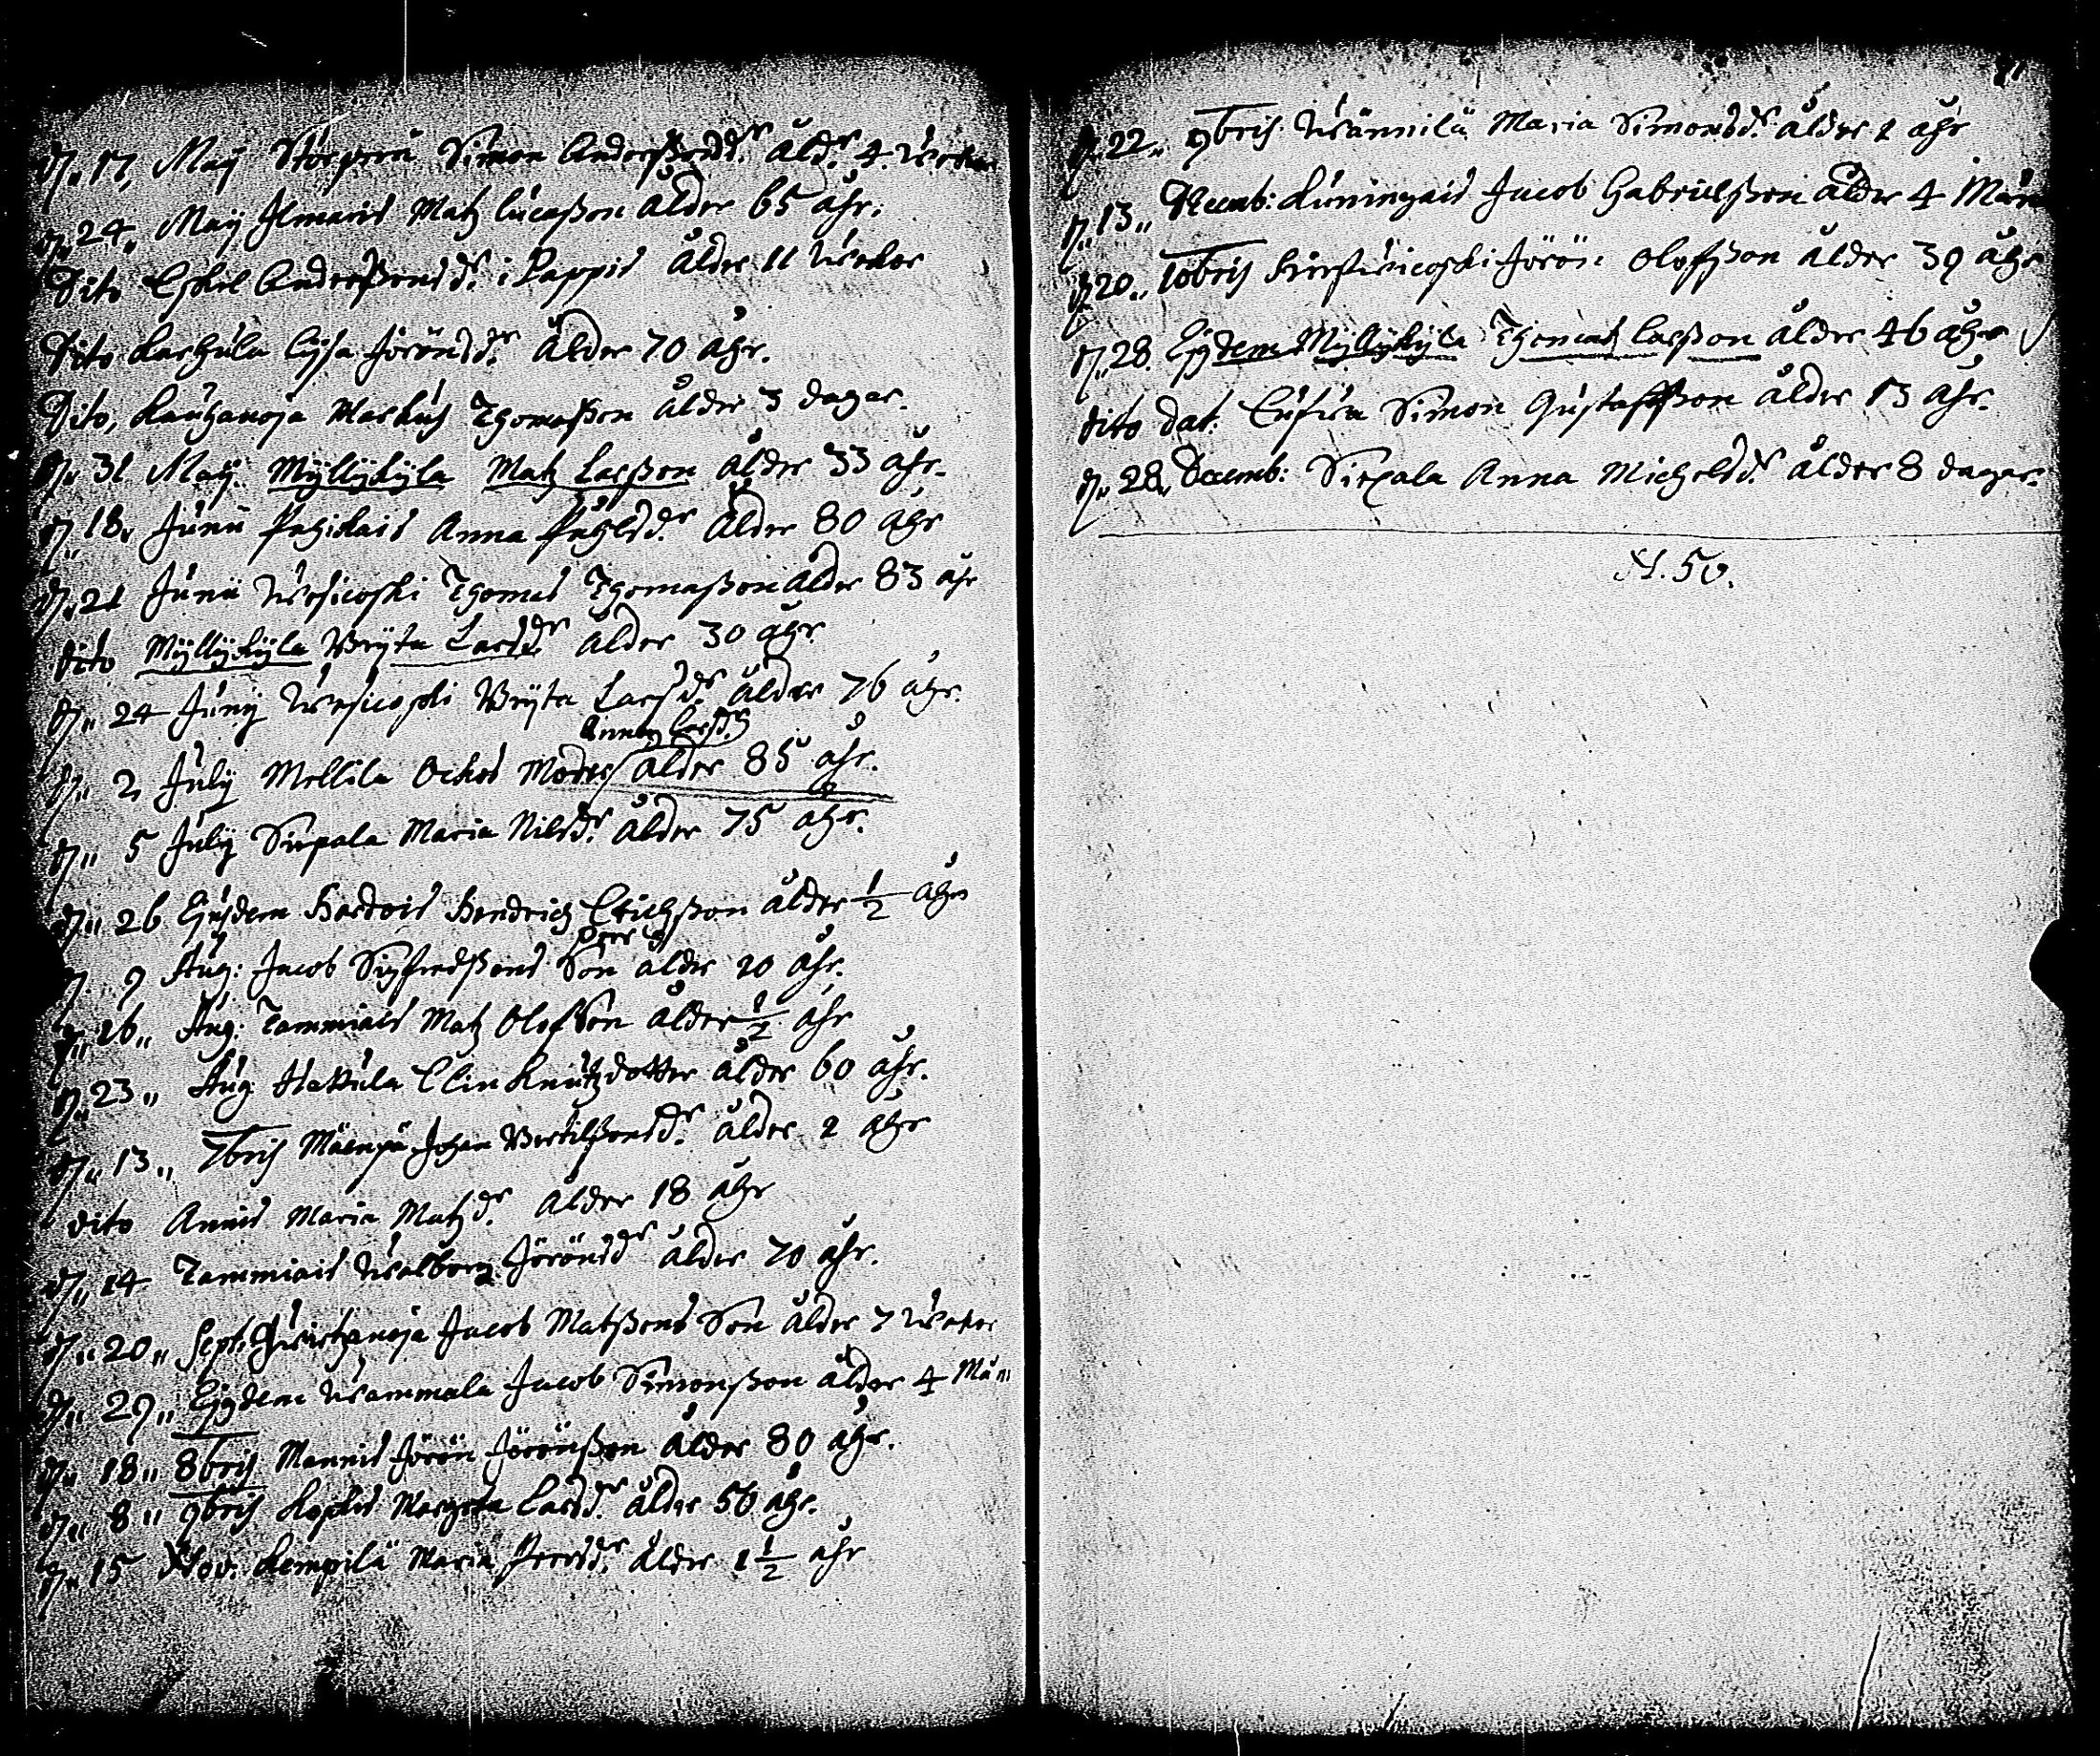 D. 17, Maij Storperä Simon Anderßons dr. åldr. 4. Weckor
D. 24. Maij Ilmaris Matz Lucaßon ålder 65 åhr.
Dito Eskil Anderßons dr. i Lappis ålder 11 Weckor
Dito Karhula Lijsa Jöröns dr. ålder 70 åhr.
Dito, Kauhanoja Markus Thomaßon ålder 3 dagar.
D. 31 Maij. Myllykyla Matz Larßon ålder 33 åhr.
D. 18. Junii Anna Påhls dr. ålder 80 åhr
D. 21 Junii Wesicoski Thomas Thomaßon ålder 83 åhr
dito Myllykyla Brijta Lars dr. ålder 30 åhr
D. 24 Junij Wesicoski Brijta Lars dr. ålder 76 åhr.
Anna Lars dr
D. 2 July Mellila Ockos Moder ålder 85 åhr.
D. 5 July Sirpala Maria Nils dr. ålder 75 åhr.
D. 26 Ejusdem Hardois Hendrich Erichsson ålder 1/2 åhr
Peer
D. 9 Aug: Jacob Sigfredßons Son ålder 20 åhr.
D. 16. Aug: Tammiais Matz Olofson ålder 1/2 åhr
D. 23. Aug: Hattula Elin Knutzdotter ålder 60 åhr.
D. 13. 7bris Mäenpä Johan Bertilßons dr. ålder 2 åhr
dito Annis Maria Matz dr. ålder 18 åhr
D. 14 Tammiais Walborg Jöröns dr ålder 70 åhr.
D. 20. Sept. Jacob Matßons Son ålder 7 Weckor
D. 29. Ejusdem Wammala Jacob Simonßon ålder 4 Mån
D. 18. 8bris Mannis Jörön Jörönßon ålder 80 åhr.
D. 8. 9bris Margeta Lars dr. ålder 56 åhr.
D. 15 Nov. Kempilä Maria Peers dr. ålder 1 1/2 åhr
D. 22. 9bris. Wännilä Maria Simons dr. ålder 2 åhr
D. 13. Decemb: Kuningais Jacob Gabrielßon ålder 4 Mån
D. 20. 10bris Jörön Olofsson ålder 39 åhr
D. 28. Ejusdem Myllykyla Thomas Larßon ålder 46 åhr
dito dat. Simon Gustafßon ålder 13 åhr.
D. 28. Decemb: Sirpala Anna Michels dr. ålder 8 dagar.
N. 50.